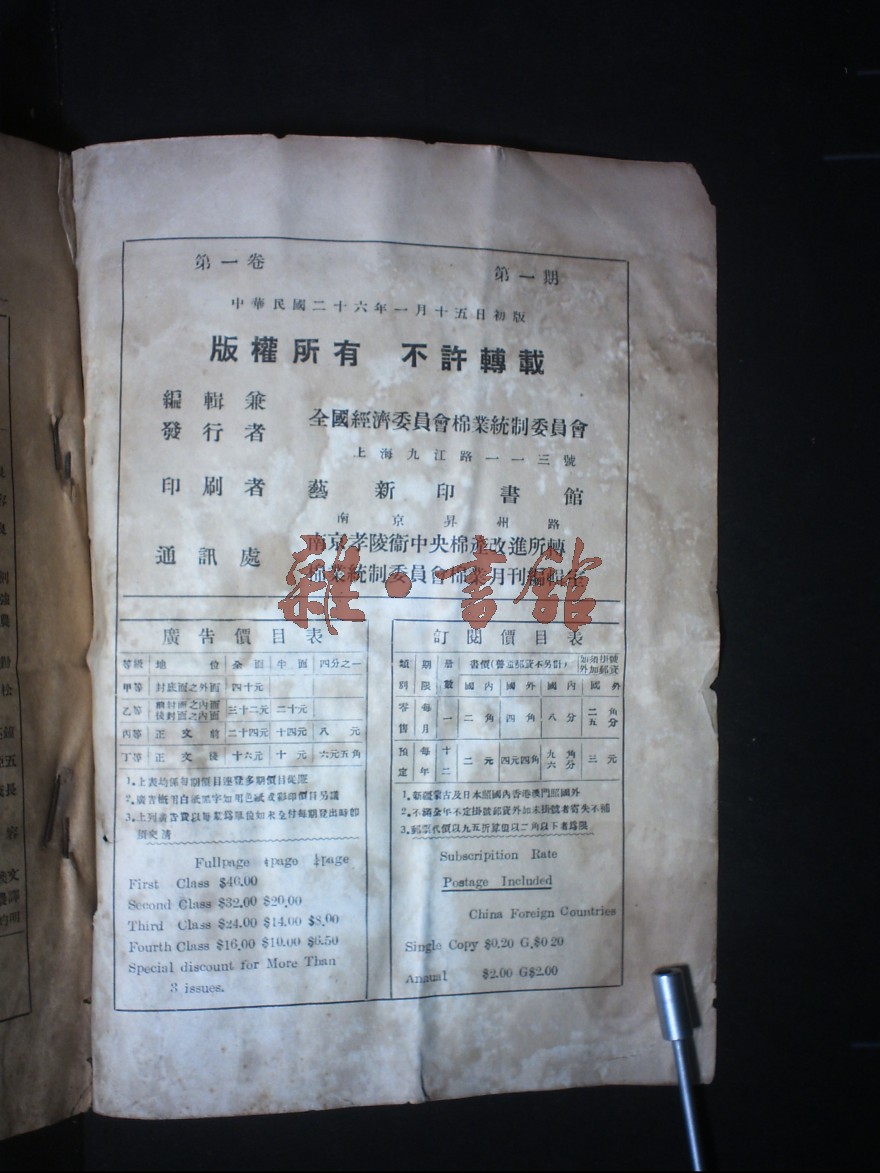 第一卷 第一期
中華民國二十六年一月十五日初版
版權所有 不許轉載
編輯兼發行者 全國經濟委員會棉業統制委員會
上海九江路一一三號
印刷者 藝新印書館
南京昇州路
通訊處 南京孝陵衛中央棉產改進所轉
棉業統制委員會棉業月刊編輯室
雜·書館
廣告價目表
等級 地位 全面 半面 四分之一
甲等 封底面之外面 四十元
乙等 前封面之內面 後封面之內面 三十二元 二十元
丙等 正文前 二十四元 十四元 八元
丁等 正文後 十六元 十元 六元五角
1.上表均係每期價目連登多期價目從廉
2.廣告概用白紙黑字如用色紙或彩印價目另議
3.上列廣告費以每期為單位如未全付每期登出時即
須交清
Fullpage ½page ¼page
First Class $40.00
Second Class $32.00 $20.00
Third Class $24.00 $14.00 $8.00
Fourth Class $16.00 $10.00 $6.50
Special discount for More Than
3 issues.
訂閱價目表
類別 期限 量數 書價(普通郵資不另計) 如須掛號外加郵資
國內 國外 國內 國外
零售 每月 一 二角 四角 八分 二角五分
預定 每年 十二 二元 四元四角 九角六分 三元
1.新疆蒙古及日本照國內香港澳門照國外
2.不滿全年不定掛號郵資外如未掛號者遺失不補
3.郵票代價以九五折算但以二角以下者為限
Subscripition Rate
Postage Included
China Foreign Countries
Single Copy $0.20 G.$0 20
Annual $2.00 G$2.00